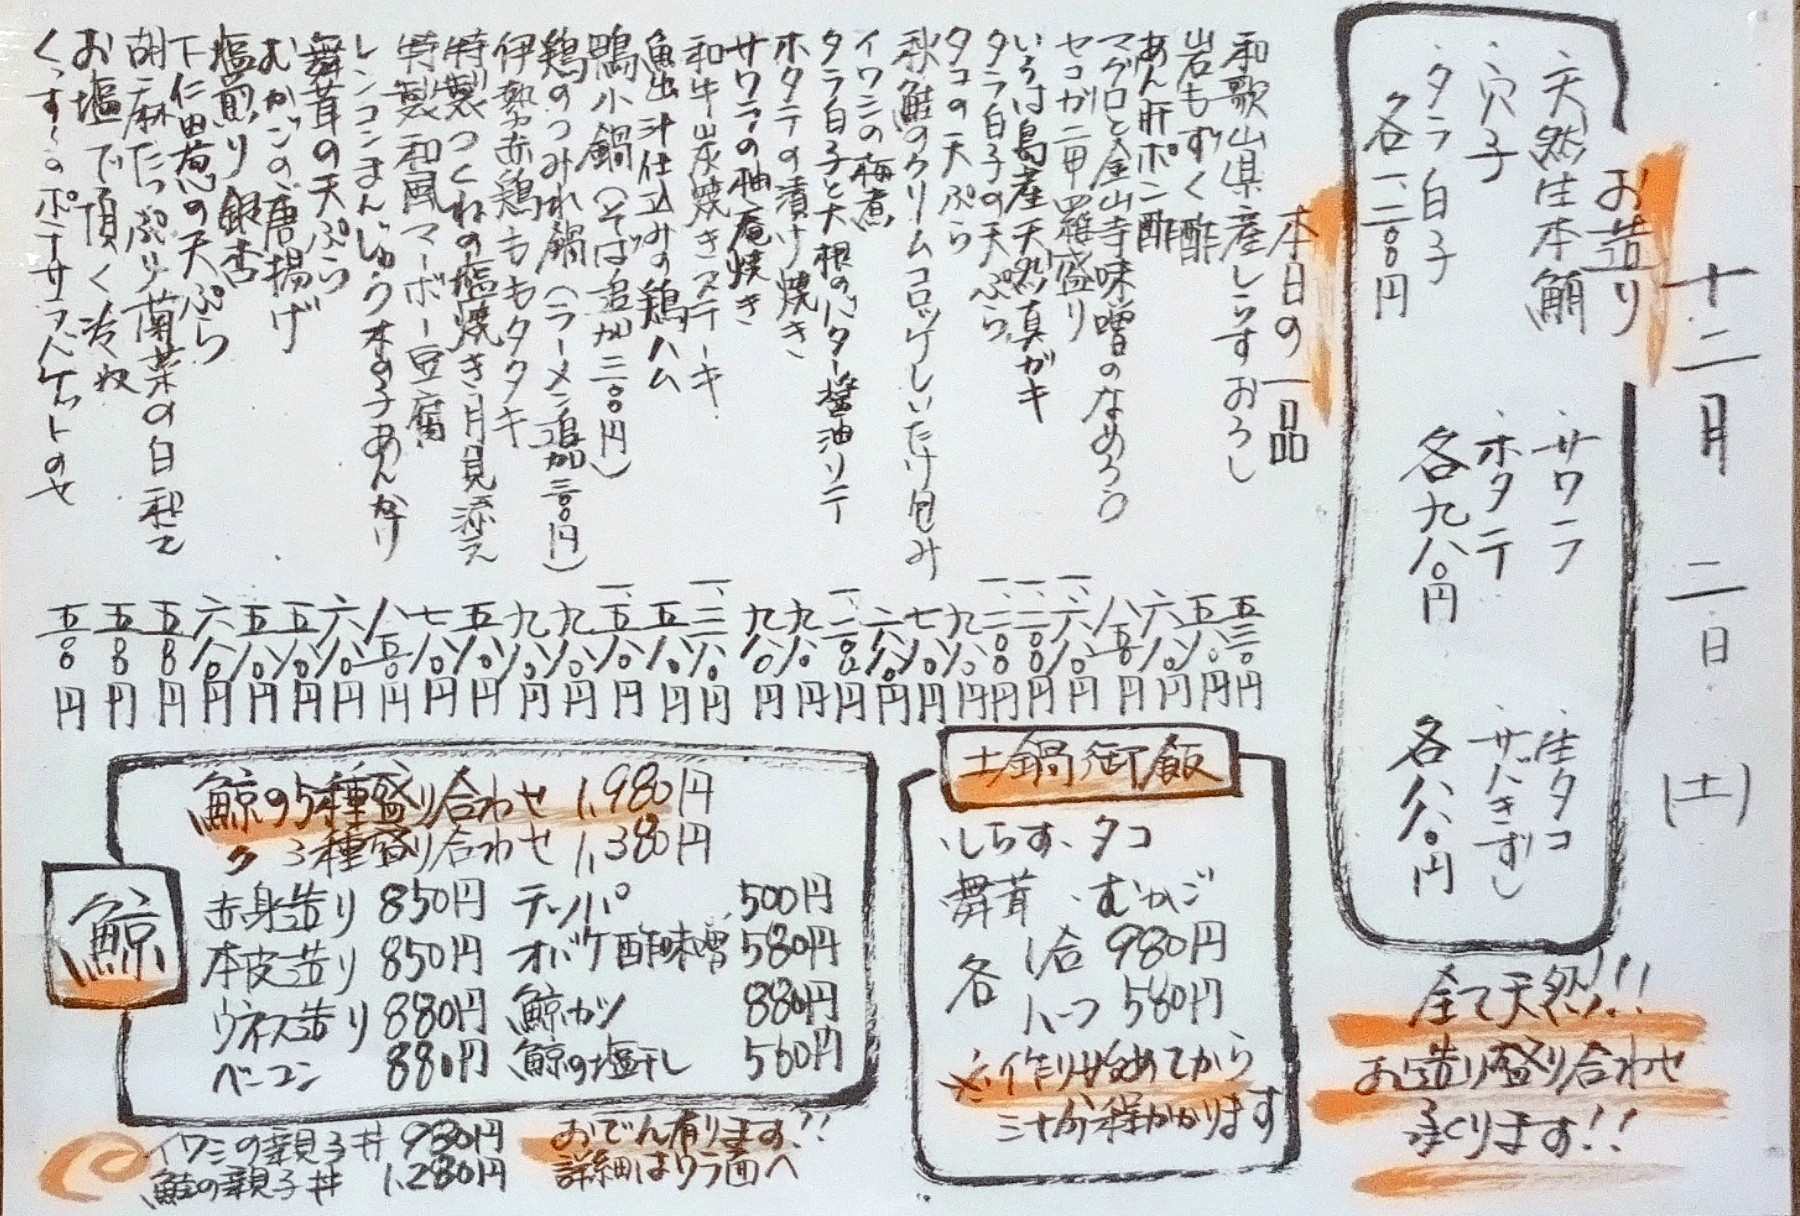 十二月二日(土)
お造り
・天然生本鮪
・穴子
・タラ白子
各一、二〇〇円
・サワラ
・ホタテ
各九八〇円
・生タコ
・サバきずし
各八八〇円
全て天然!!!
お造り盛り合わせ
承ります!!
本日の一品
和歌山県産しらすおろし 五三〇円
岩もずく酢 五八〇円
あん肝ポン酢 六八〇円
マグロと金山寺味噌のなめろう 八五〇円
セコガニ甲羅盛り 一、六八〇円
いろは島産天然真ガキ 一、二〇〇円
タラ白子の天ぷら 一、二〇〇円
タコの天ぷら 九八〇円
秋鮭のクリームコロッケしいたけ包み 七八〇円
イワシの梅煮 六八〇円
タラ白子と大根のバター醤油ソテー 一、二〇〇円
ホタテの漬け焼き 九八〇円
サワラの柚庵焼き 九八〇円
和牛炭焼きステーキ 一、三八〇円
魚出汁仕込みの鶏ハム 五八〇円
鴨小鍋(そば追加三〇〇円) 一、五八〇円
鶏のつみれ鍋(ラーメン追加三〇〇円) 九八〇円
伊勢赤鶏ももタタキ 九八〇円
特製つくねの塩焼き月見添え 五八〇円
特製和風マーボー豆腐 七八〇円
レンコンまんじゅう木の子あんかけ 八五〇円
舞茸の天ぷら 六八〇円
むかごの唐揚げ 五八〇円
塩煎り銀杏 五八〇円
下仁田葱の天ぷら 六八〇円
胡麻たっぷり菊菜の白和え 五五〇円
お塩で頂く冷奴 五五〇円
くんすーのポテサラ 五五〇円
土鍋御飯
・しらす・タコ
舞茸・むかご
各 1合 980円
ハーフ 580円
※作り始めてから
三十分程かかります
鯨
鯨の5種盛り合わせ 1,980円
〃 3種盛り合わせ 1,380円
赤身造り 850円 テッパ 500円
本皮造り 850円 オバケ酢味噌 580円
ウネス造り 880円 鯨カツ 880円
ベーコン 880円 鯨の塩干し 560円
イワシの親子丼 980円
鮭の親子丼 1,280円
おでん有ります!!
詳細はウラ面へ